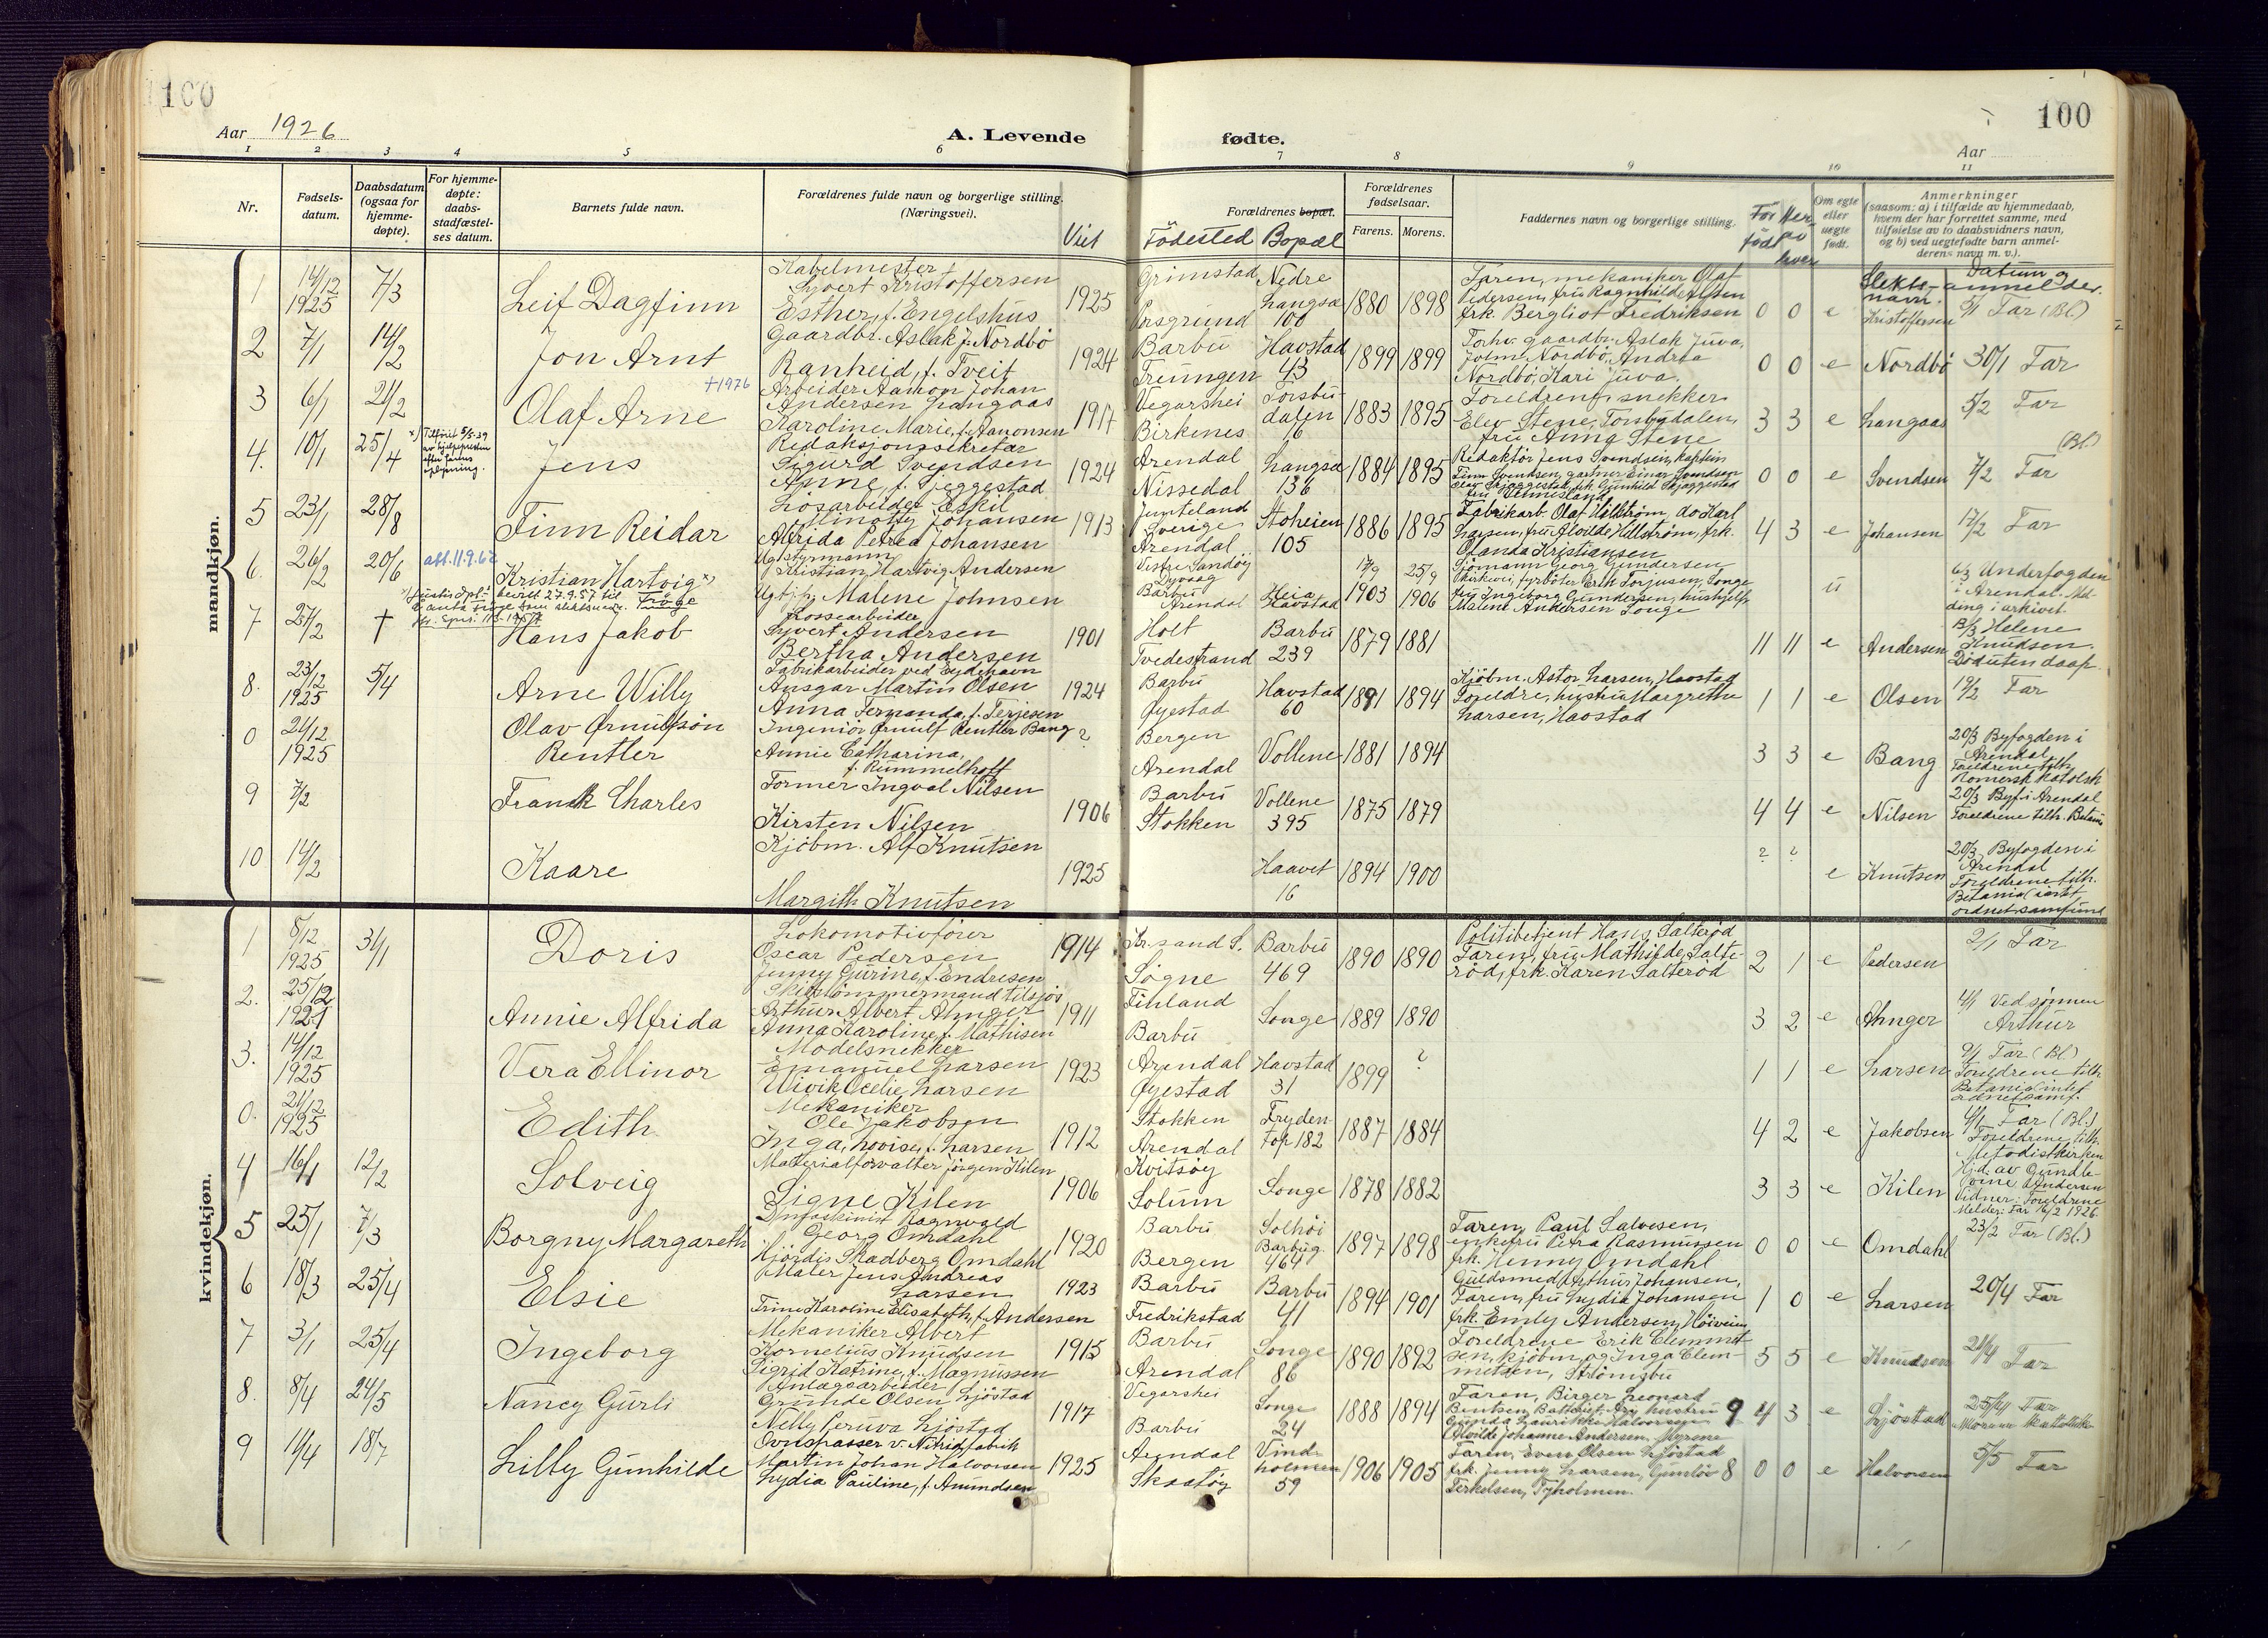 100
100
Aar 1926
A. Levende fødte.
Aar
1 2 3 4 5 6 7 8 9 10 11
Nr.
Fødsels-
datum.
Daabsdatum
(ogsaa for
hjemme-
døpte).
For hjemme-
døpte:
daabs-
stadfæstel-
ses datum.
Barnets fulde navn.
Forældrenes fulde navn og borgerlige stilling.
(Næringsvei).
Viet
Forældrenes bopæl.
Födested Bopæl
Forældrenes
fødselsaar.
Farens. Morens.
Faddernes navn og borgerlige stilling.
Før
född
Om egte
eller
uegte
født.
Anmerkninger
(saasom: a) i tilfælde av hjemmedaab,
hvem der har forrettet samme, med
tilføielse av to daabsvidners navn,
og b) ved uegtefødte barn anmel-
derens navn m. v.).
Slekts-
navn.
Datum og
anmelder.
mandkjøn.
1
14/12
1925
7/3
Leif Dagfinn
Kabelmester
Syvert Kristoffersen
Esther, f. Engelshus
1925
Grimstad
Porsgrund
Nedre
Langsæ
100
1880 1898
Faren, mekaniker Olaf
Pedersen, fru Ragnhild
frk. Bergliot Fredriksen
0 0 e
Kristoffersen
5/1 Far (Bl.)
2
7/1
14/2
Jon Arnt
Gaardbr. Aslak J. Nordbö
Ranheid, f. Tveit
1924
Barbu
Treungen
Havstad
43
1899 1899
Forhv. gaardbr. Aslak Juva,
John Nordbö, Andrea
Nordbö, Kari Juva.
0 0 e
Nordbö
30/1 Far
3
6/1
21/2
Olaf Arne
+1976
Arbeider Aamon Johan
Andersen Langaas
Karoline Marie, f. Aanonsen
1917
Vegarshei
Birkenes
Torsbu-
dalen
16
1883 1895
Foreldrene, snekker
Elev Stene, Torsbydalen,
fru Anna Stene
3 3 e
Langaas
5/2 Far
4.
10/1
25/4
x) Tilföiet 5/5-39
av hjelpepresten
efter farens
oplysning.
Jens
Redaksjonssekretær
Sigurd Svendsen
Anne, f. Skjeggestad
1924
Arendal
Nissedal
Langsæ
136
1884 1895
Redaktör Jens Svendsen, kaptein
Finn Svendsen, gartner Einar Svendsen
0 0 e
Svendsen
7/2 Far
(Bl.)
5
23/1
28/8
Finn Reidar
Lösarbeider Eskil
Johansen
Alfrida Petrea Johansen
1913
Jemteland
Sverige
Arendal
Stoheien
105
1886 1895
Fabrikarb. Olaf Hellström, do Karl
Larsen, fru Alvilde Hellström, frk.
Olanda Kristiansen
4 3 e
Johansen
17/2 Far
6.
26/2
20/6
att. 11.9.62
Kristian Hartvig x)
Ug. styrmann
Kristian Hartvig Andersen
Ugt. pi. Malene Johnsen
Vestre Sandöy
Dyvaag
Barbu
Arendal
Heia
Havstad
17/9 25/9
1903 1906
Sjömann Georg Gundersen
Malene Andersen Songe
u
6/3 Underfogden
i Arendal. Mel-
ding i arkivet.
7
27/2
†
Hans Jakob
Lossearbeider
Syvert Andersen
Bertha Andersen
1901
Holt
Tvedestrand
Barbu
239
1879 1881
11 11 e
Andersen
13/3 Helene
Knudsen.
Död uten daap.
8.
23/12
1925
5/4
Arne Willy
Fabrikarbeider ved Eydehavn
Ansgar Martin Olsen
Anna Fernanda, f. Terjesen
1924
Barbu
Øyestad
Havstad
60
1891 1894
Kjöbm. Astor Larsen, Havstad
Foreldre, hustru Margrethe
Larsen, Havstad
1 1 e
Olsen
19/2 Far
0
21/12
1925
Olav Ørnulfsön
Rentler
Ingeniör Ørnulf Rentler Bang
Annie Catharina,
f. Rummelhoff
?
Bergen
Arendal
Vollene
1881 1894
3 3 e
Bang
20/3 Byfogden i
Arendal
Foreldrene tilh.
Romersk katolsk
9
7/2
Frank Charles
Former Ingval Nilsen
Kirsten Nilsen
1906
Barbu
Stokken
Vollene
395
1875 1879
4 4 e
Nilsen
20/3 Byf. i Arendal
Foreldrene tilh. Betania
10
14/2
Kaare
Kjöbm. Alf Knutsen
Margith Knutsen
1925
Haavet
16
1894 1900
? ?
e
Knutsen
20/3 Byfogden i
Arendal
Foreldrene tilh.
Betania (intet
ordnet samfund
kvindekjøn.
1
8/12
1925
31/1
Doris
Lokomotivförer
Oscar Pedersen
Jenny Gurine, f. Endresen
1914
Kr.sand S.
Sögne
Barbu
469
1890 1890
Politibetjent Hans Salteröd
Faren, fru Mathilde Salte-
röd, frk. Karen Salteröd
2 1 e
Pedersen
2/1 Far
2.
25/12
1921
Annie Alfrida
Skibstömmermand tilsjös
Arthur Albert Ahnger
Anna Karoline f. Mathisen
1911
Finland
Barbu
Songe
1889 1890
3 2 e
Ahnger
4/1 Ved sönnen
Arthur
3.
14/12
1925
Vera Ellinor
Modelsnekker
Emanuel Larsen
Vivik Cecelie Larsen
1923
Arendal
Øyestad
Havstad
31
1899 ?
1 1 e
Larsen
9/1 Far (Bl)
Foreldrene tilh.
Betania (intet
ordnet samf.
0.
21/12
1925
Edith
Mekaniker
Ole Jakobsen
Inga, Lovise, f. Larsen
1912
Stokken
Arendal
Fryden-
top 182
1887 1884
4 2 e
Jakobsen
4/1 Far (Bl.)
Foreldrene tilh.
Metodistkirken
4
16/1
12/2
Solveig
Materialforvalter Jörgen Kilen
Signe Kilen
1906
Kvitsöy
Solum
Songe
1878 1882
3 3 e
Kilen
Hj.d. av Gundle-
vine Andersen
Vidner: Foreldrene
Melder: Far 16/2 1926.
5
25/1
7/3
Borgny Margareth
Ragnvald
Georg Omdahl
Hjördis Skadberg Omdahl
1920
Barbu
Bergen
Solhöi
Barbug.
464
1897 1898
Faren, Paul Salvesen,
enkefru Petra Rasmussen
frk. Henny Omdahl
0 0 e
Omdahl
23/2 Far (Bl.)
6
18/3
25/4
Elsie
Maler Jens Andreas
Larsen
Trine Karoline Elisabeth, f. Andersen
1923
Barbu
Fredrikstad
Barbu
41
1894 1901
Guldsmed Arthur Johansen,
Faren, fru Lydia Johansen
frk. Emly Andersen, Höiveien
1 0 e
Larsen
20/4 Far
7
3/1
25/4
Ingeborg
Mekaniker Albert
Kornelius Knudsen
Sigrid Katrine, f. Magnussen
1915
Barbu
Arendal
Songe
86
1890 1892
Foreldrene Erik Clemmet-
sen, kjöbm. og Inga Clem-
metsen, Strömsbu
5 5 e
Knudsen
21/4 Far
8.
8/4
24/5
Nancy Gurli
Anlægsarbeider
Grunde Olsen Sjöstad
Nelly Peruva Sjöstad
1917
Vegarshei
Barbu
Songe
24
1888 1894
Faren, Birger Leonard
Alvilde Johanne Andersen, Myrene
9 4 3 e
Sjöstad
25/4 Far
9
11/4
18/7
Lilly Gunhilde
Ovnspasser v. Nitridfabrik
Martin Johan Halvorsen
Lydia Pauline, f. Amundsen
1925
Arendal
Skaatöy
Vind-
holmen
59
1906 1905
Faren, Even Olsen Sjöstad
frk. Jenny Larsen, Gunlöv
Terkelsen, Tyholmen.
8 0 0 e
Halvorsen
5/5 Far